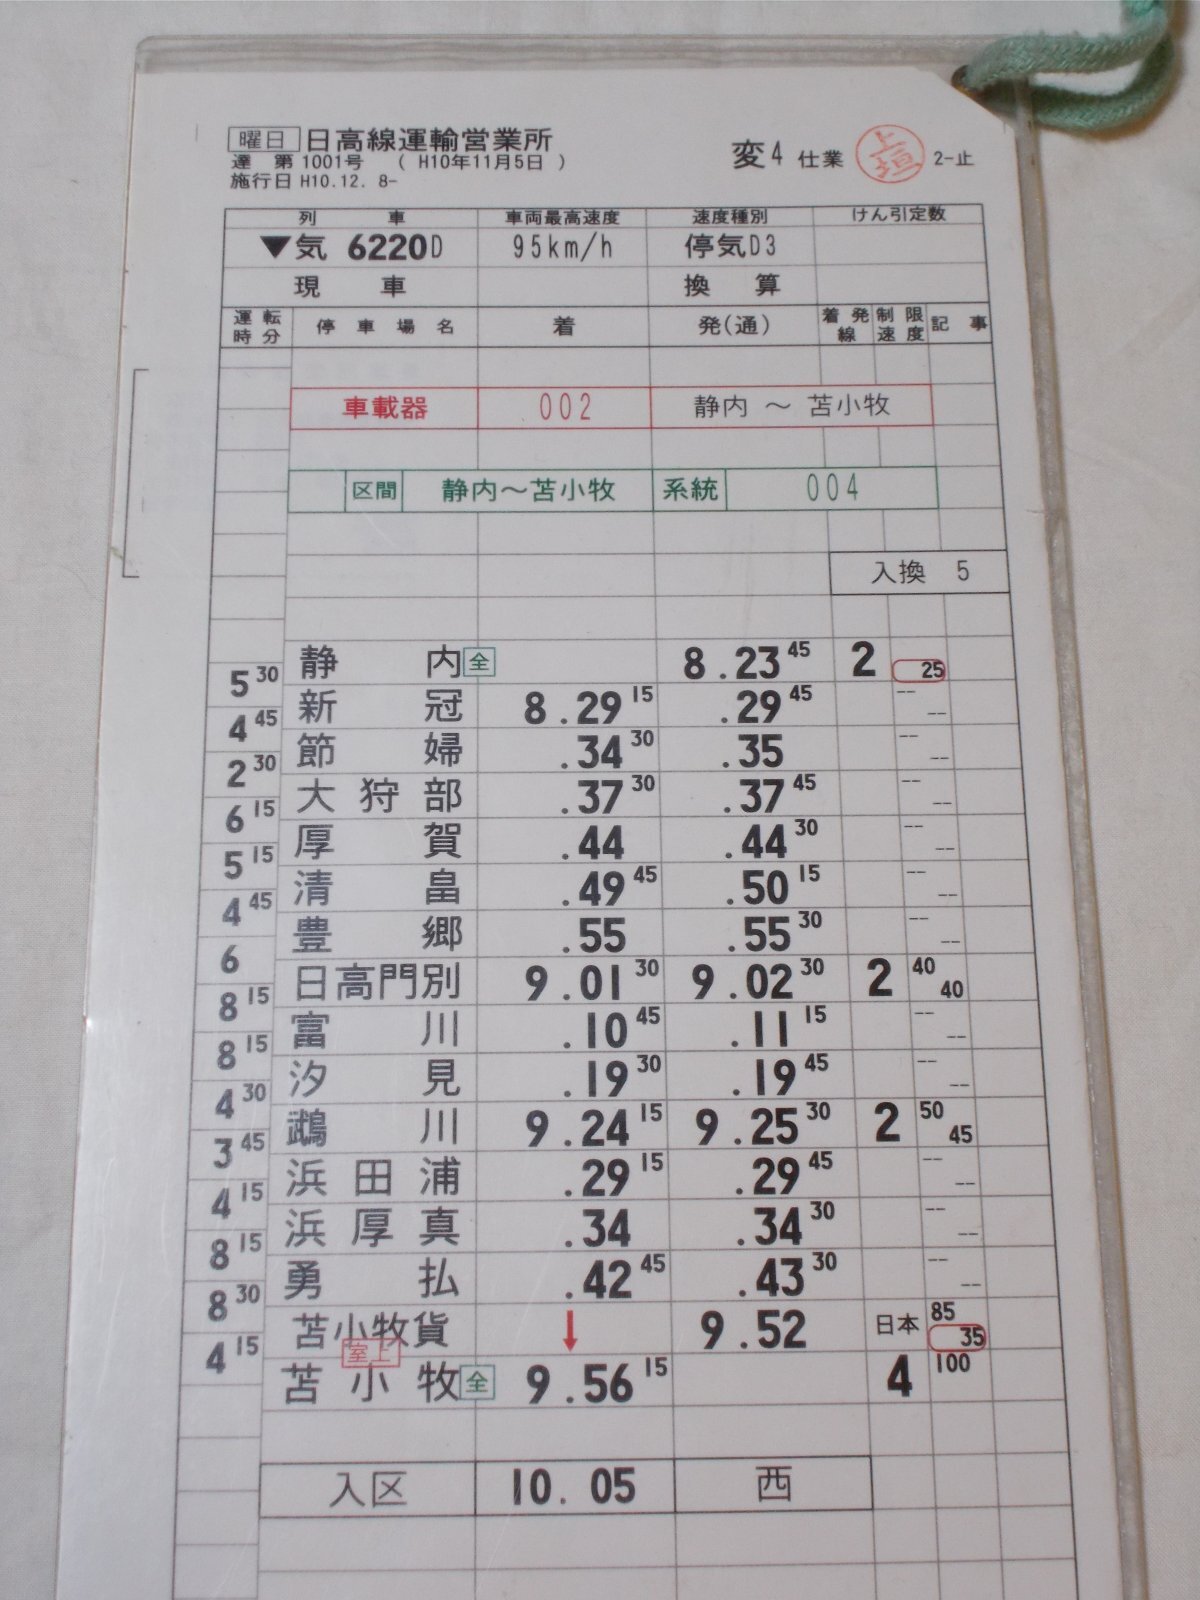 曜日 日高線運輸営業所
達 第1001号 ( H10年11月5日 )
施行日 H10.12. 8-
変4 仕業 上垣 2-止
列 車 車両最高速度 速度種別 けん引定数
▼気 6220D 95km/h 停気D3
現 車 換 算
運転時分 停車場名 着 発(通) 着発線 制限速度 記事
車載器 002 静内 ～ 苫小牧
区間 静内～苫小牧 系統 004
入換 5
静 内 全 8.23 45 2 25
5 30
新 冠 8.29 15 .29 45 -- --
4 45
節 婦 .34 30 .35 -- --
2 30
大 狩 部 .37 30 .37 45 -- --
6 15
厚 賀 .44 .44 30 -- --
5 15
清 畠 .49 45 .50 15 -- --
4 45
豊 郷 .55 .55 30 -- --
6
日高門別 9.01 30 9.02 30 2 40 40
8 15
富 川 .10 45 .11 15 -- --
8 15
汐 見 .19 30 .19 45 -- --
4 30
鵡 川 9.24 15 9.25 30 2 50 45
3 45
浜 田 浦 .29 15 .29 45 -- --
4 15
浜 厚 真 .34 .34 30 -- --
8 15
勇 払 .42 45 .43 30 -- --
8 30
苫小牧貨 ↓ 9.52 日本 85 35
4 15
室上
苫 小 牧 全 9.56 15 4 100
入区 10.05 西